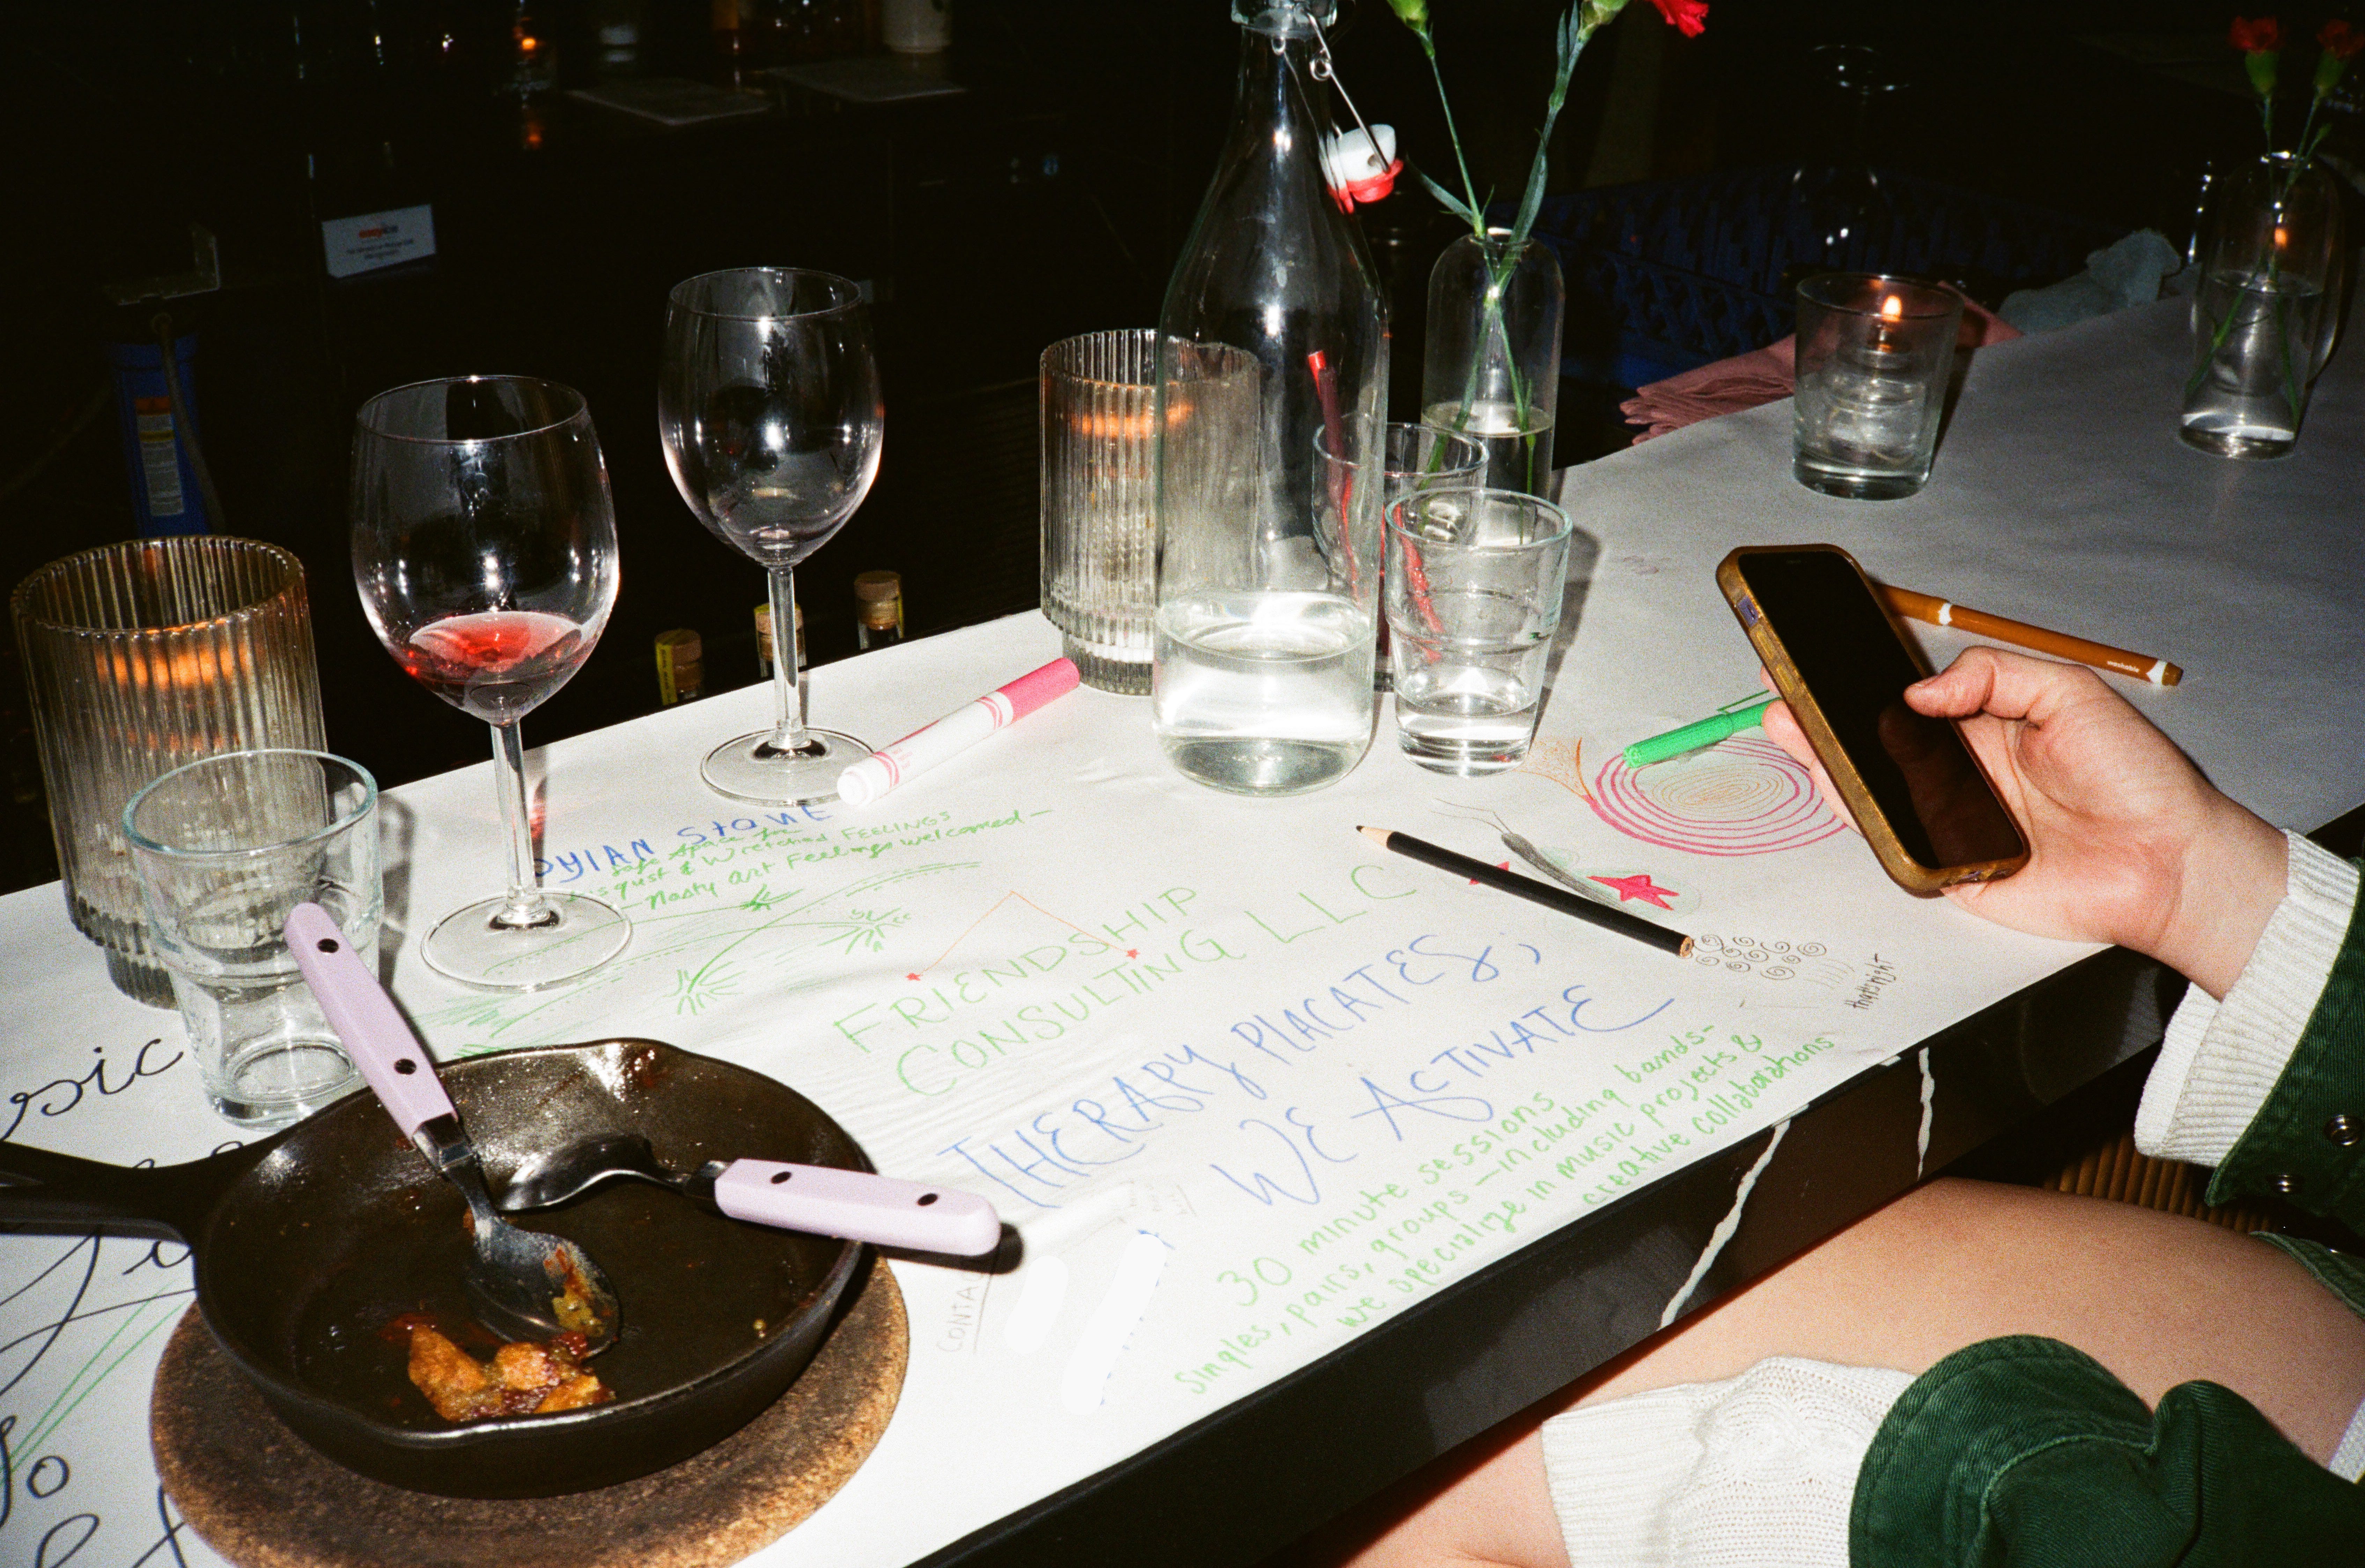 DYLAN STONE
safe space for
Disgust & Wretched FEELINGS
— Nasty Art Feelings welcomed —
FRIENDSHIP
CONSULTING LLC
THERAPY PLACATES;
WE ACTIVATE
30 minute sessions
singles, pairs, groups — including bands-
we specialize in music projects &
creative collaborations
that's right
CONTAC
washable
sic